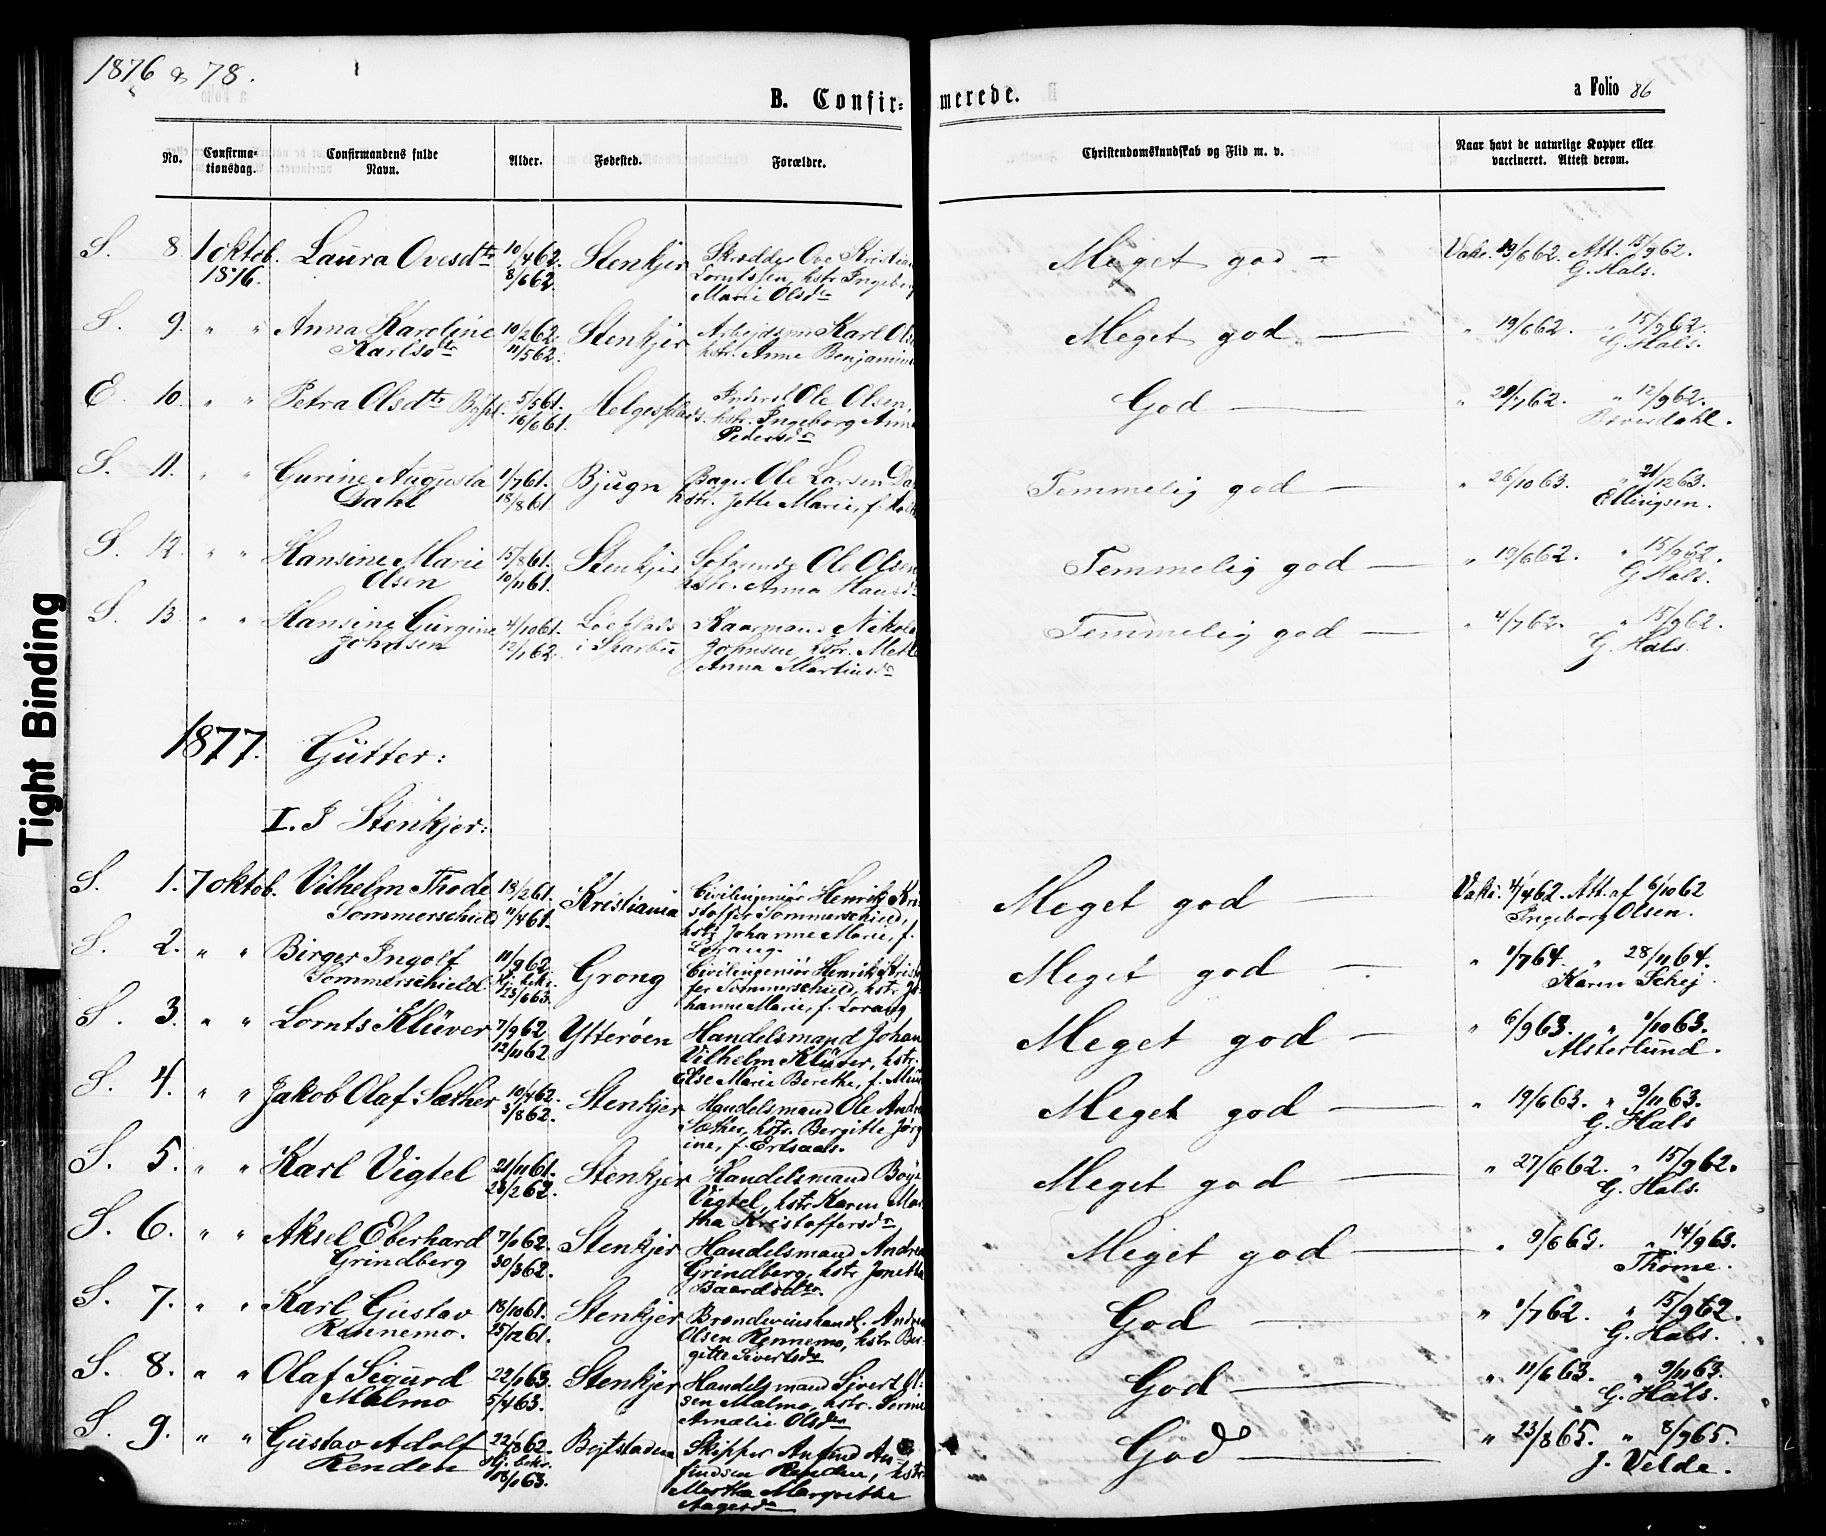 1876 & 78.
B. Confir= merede.
a Folio 86
No. Confirma-tionsdag. Confirmandens fulde Navn. Alder. Fødested. Forældre. Christendomskundskab og Flid m. v. Naar havt de naturlige Kopper eller vaccineret. Attest derom.
S. 8. 1 oktob. Laura Ovesdtr 10/4 62. Stenkjer Skrædder Ove Kristian Meget god — Vakc. 19/6 62. Att. 15/9 62.
1876. 8/6 62. Lorntssen, hstr. Ingeborg G. Hals.
Marie Olsdr
S. 9. " " Anna Karoline 10/2 62. Stenkjer Arbejdsm Karl Ols Meget god — " 19/6 62. " 15/9 62.
Karlsdtr 11/5 62. hstr. Anne Benjamins G. Hals.
E. 10. " " Petra Olsdtr 5/5 61. Helgesplads. Inderst Ole Olsen, God — " 28/7 62. " 12/9 62.
16/6 61. hstr. Ingeborg Anna Beverdahl.
Pedersdr
S. 11. " " Gurine Augusta 1/7 61. Bjugn Bager Ole Larsen Da Temmelig god — " 26/10 63. " 21/12 63.
Dahl 18/8 61. hstr. Jette Marie, f. Ellingsen.
S. 12. " " Hansine Marie 15/8 61. Stenkjer Ole Olsen Temmelig god — " 19/6 62. " 15/9 62.
Olsen 10/11 61. hstr. Anna Hansdr G. Hals.
S. 13. " " Hansine Gurgine 4/10 61. Nikola Temmelig god — " 4/7 62. " 15/9 62.
Johnsen 12/1 62. i Sparbu Johnsen, hstr. Mette G. Hals.
Anna Martinsdr
1877. Gutter:
I. I Stenkjer:
S. 1. 7 oktob. Vilhelm Thode 18/2 61. Kristiania Civilingeniør Henrik Kri- Meget god — Vakc. 4/4 62. Att. af 6/10 62
Sommerschield 11/4 61. stoffer Sommerschield, Ingeborg Olsen.
hstr Johanne Marie, f.
Lorang.
S. 2. " " Birger Ingolf 11/9 62. Grong Civilingeniør Henrik Kristof- Meget god — " 1/7 64. " 28/11 64.
Sommerschield Hj. bekr. 23/6 63. fer Sommerschield, hstr. Jo- Karen Schej.
hanne Marie, f. Lorang
S. 3. " " Lornts Klüver 7/9 62. Ytterøen Handelsmand Johan Meget god — " 6/9 63. " 1/10 63.
12/11 62 Vilhelm Klüver, hstr. Alsterlund.
Else Marie Berethe, f.
S. 4. " " Jakob Olaf Sæther 10/4 62. Stenkjer Handelsmand Ole Andr Meget god — " 19/6 63. " 9/11 63.
3/8 62. Sæther, hstr. Bergitte Jørg G. Hals
ine, f. Ertsaas.
S. 5. " " Karl Vigtel 21/11 61. Stenkjer Handelsmand Boye Meget god — " 27/6 62. " 15/9 62.
23/2 62. Vigtel, hstr Karen Mar G. Hals.
tha Kristoffersdr
S. 6. " " Aksel Eberhard 7/1 62. Stenkjer Handelsmand Andrea Meget god — " 9/6 63. " 14/9 63.
Grindberg 30/3 62. Grindberg, hstr Jonetta Thome.
Baardsdtr.
S. 7. " " Karl Gustav 18/10 61. Stenkjer Brændevinshandl. Andrea God — " 1/7 62. " 15/9 62.
Rennemo. 25/12 61. Olsen Rennemo, hstr. Ber- G. Hals.
gitte Sivertsdr
S. 8. " " Olaf Sigurd 22/1 63. Stenkjer Handelsmand Sivert Ol- God — " 11/6 63. " 9/11 63.
Malmo 5/4 63. sen Malmo, hstr. G. Hals.
Amalie Olsdtr
S. 9. " " Gustav Adolf 22/8 62. Bejtstaden Skipper Anfind An- God — " 23/8 65. " 8/9 65.
Renden Hj. bekr. 18/1 63. findsen Renden, hstr. J. Velde.
Martha Margrethe
Aagesdr
Tight Binding